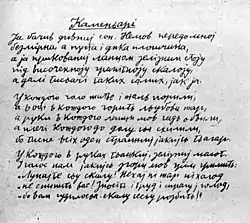 Каменярі
Я бачив дивний сон. Немов передомною
безмірна а пуста і дика площина,
а я прикований ланцом залізним стою
під височезною гранітною скалою,
а далі тисячі таких самих, як я.
У кождого чоло життє і жаль порили,
і в очі кождого горить любови жар,
а руки в кождого ланци мов гадь обвили,
а плечі кождого до долу ся схилили,
бо тисне всіх оден страшний якийсь тягар.
У кождого в руках тяжкий, зелізний молот
і голос нам якийсь згори мов грім гримить:
"Лупайте сю скалу! Нехай ні жар ні холод
не спинить вас! Зносіть і труд і спрагу, голод,
бо вам призначено скалу сесю розбить!"